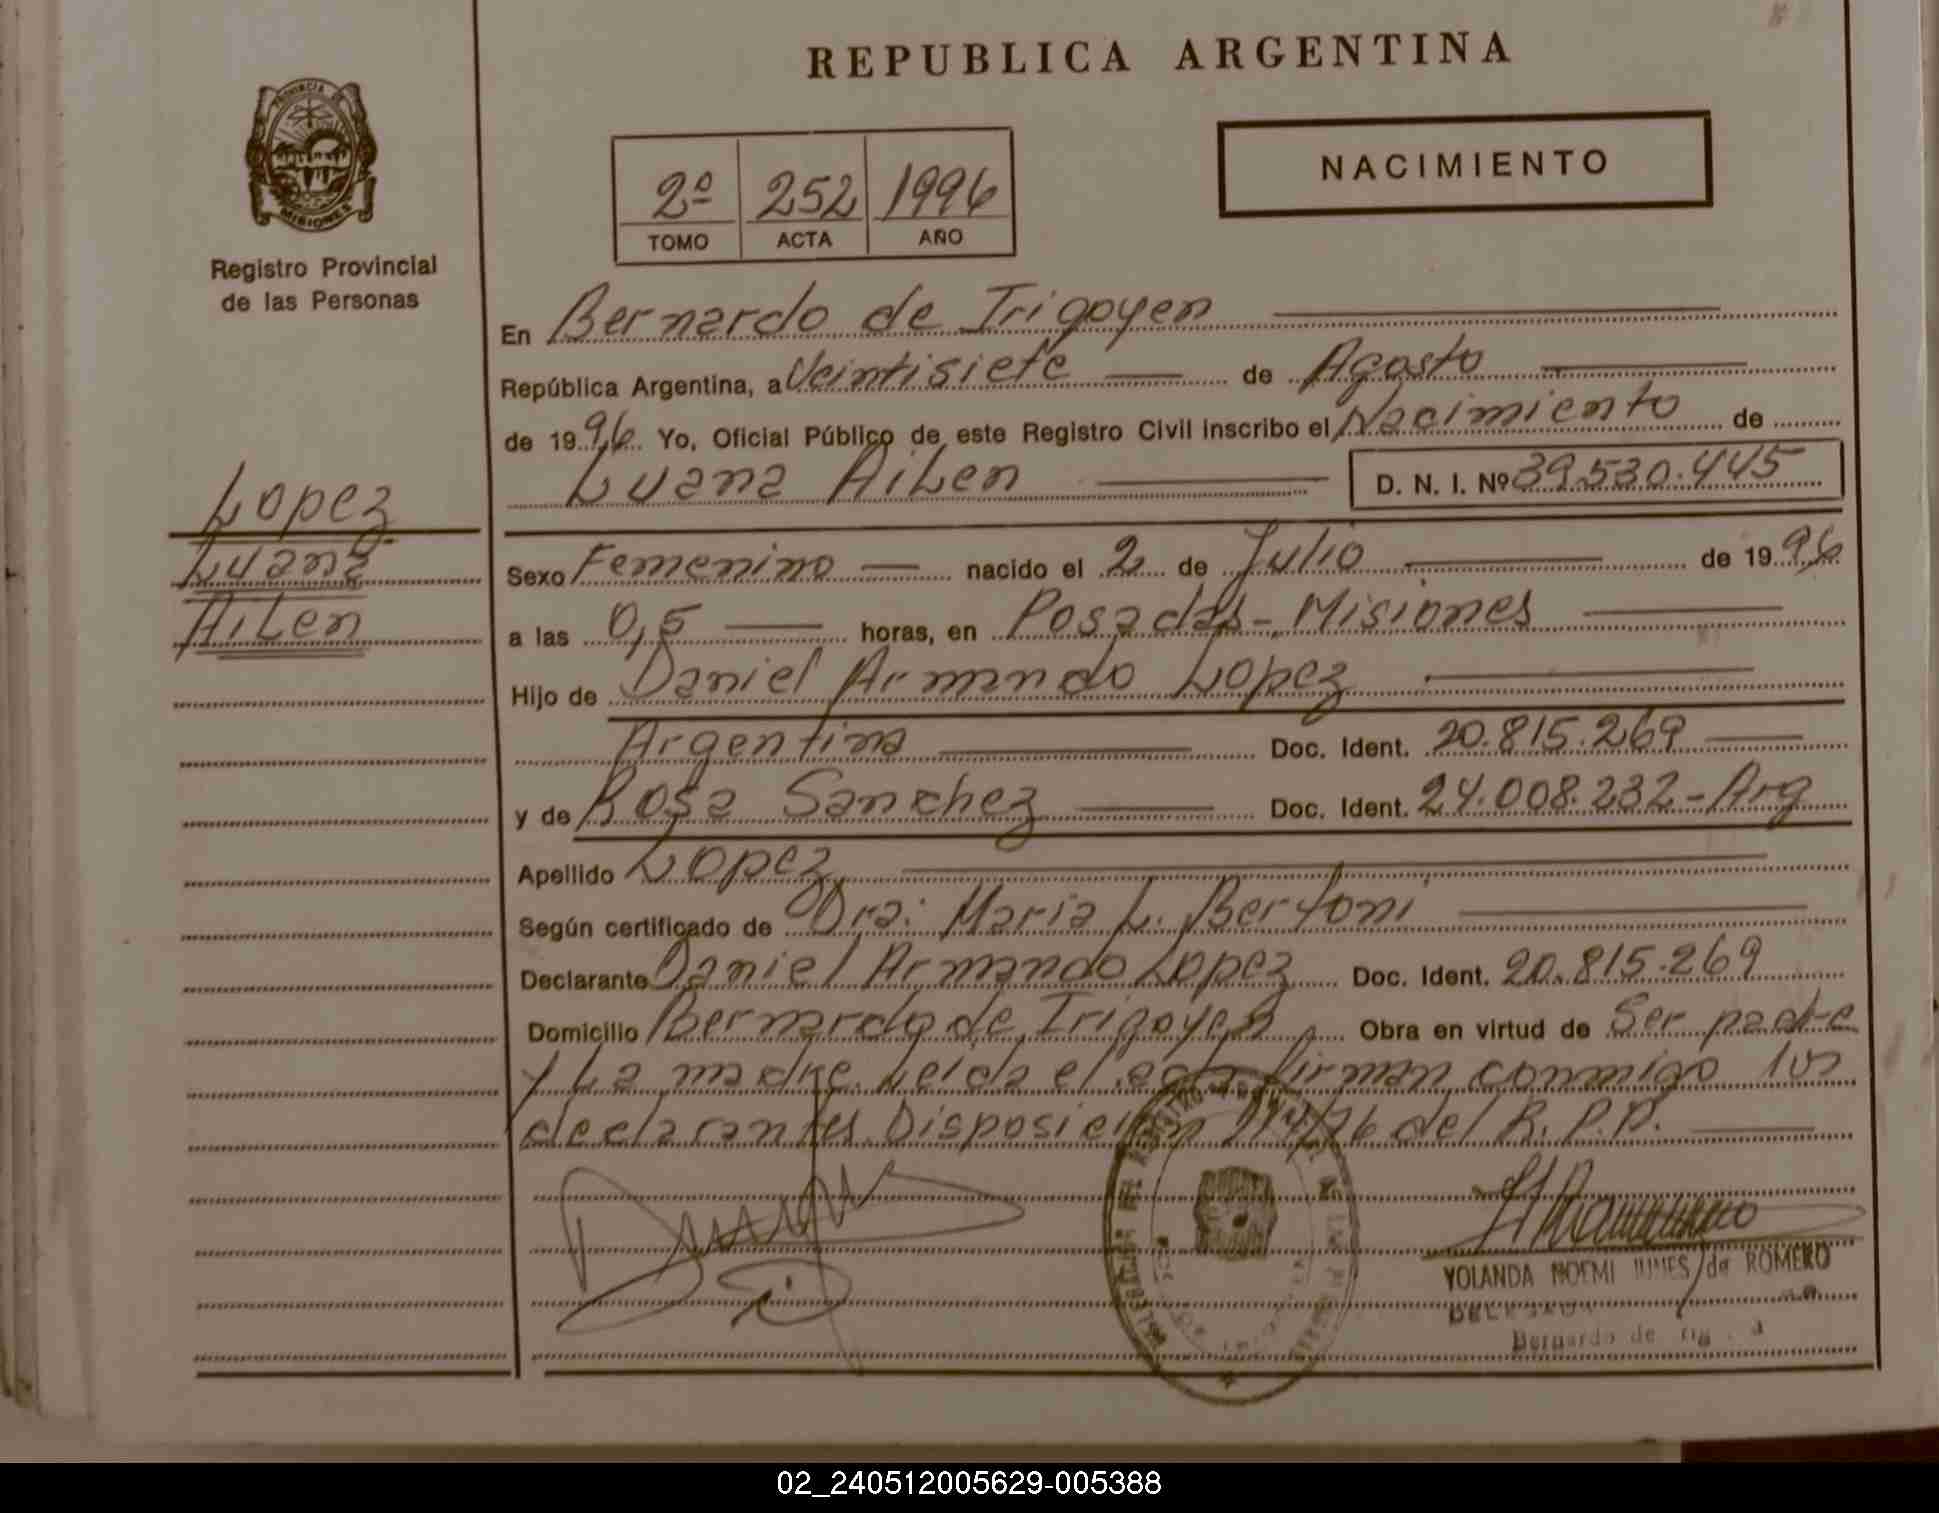 REPUBLICA ARGENTINA
PROVINCIA DE
MISIONES
Registro Provincial
de las Personas
NACIMIENTO
2º 252 1996
TOMO ACTA AÑO
En Bernardo de Irigoyen
República Argentina, a Veintisiete de Agosto
de 1996 Yo, Oficial Público de este Registro Civil inscribo el Nacimiento de
Luana Ailen D. N. I. Nº 39.530.445
Lopez
Luana
Ailen
Sexo Femenino nacido el 2 de Julio de 1996
a las 0,5 horas, en Posadas - Misiones
Hijo de Daniel Armando Lopez
Argentina Doc. Ident. 20.815.269
y de Rosa Sanchez Doc. Ident. 24.008.232 - Arg
Apellido Lopez
Según certificado de Dra: Maria L. Bertoni
Declarante Daniel Armando Lopez Doc. Ident. 20.815.269
Domicilio Bernardo de Irigoyen Obra en virtud de Ser padre
y La madre. Leida el acta firman conmigo los
declarantes Disposición del R. P. P.
YOLANDA NOEMI de ROMERO
DELEGADA
Bernardo de
02_240512005629-005388